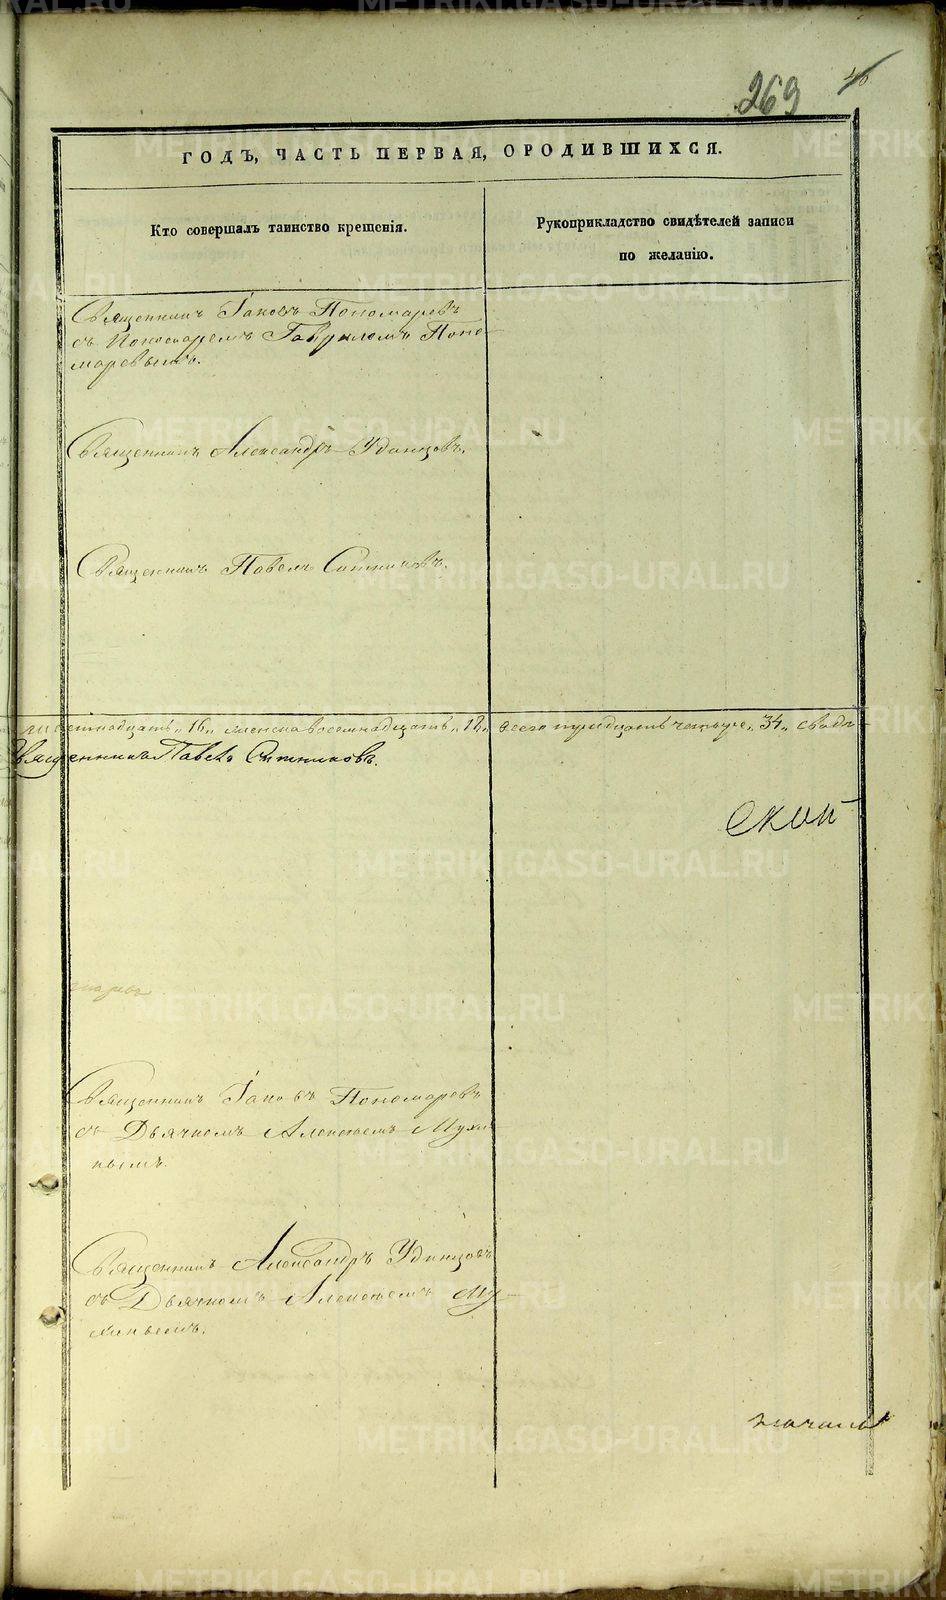 269
ГОДЪ, ЧАСТЬ ПЕРВАЯ, О РОДИВШИХСЯ.
Кто совершалъ таинство крещенія.
Рукоприкладство свидѣтелей записи
по желанію.
Священникъ Іаковъ Пономаревъ
съ Пономаремъ Гавриломъ Поно-
маревымъ.
Священникъ Александръ Удинцовъ.
Священникъ Павелъ Ситниковъ.
шестнадцать „16„ женска восемнадцать „18„ всего тридцать четыре „34„
Священникъ Павелъ Ситниковъ.
ской
Священникъ Іаковъ Пономаревъ
съ Дьячкомъ Алексѣемъ Мухи
нымъ.
Священникъ Александръ Удинцовъ
съ Дьячкомъ Алексѣемъ Му-
хинымъ.
METRIKI.GASO-URAL.RU